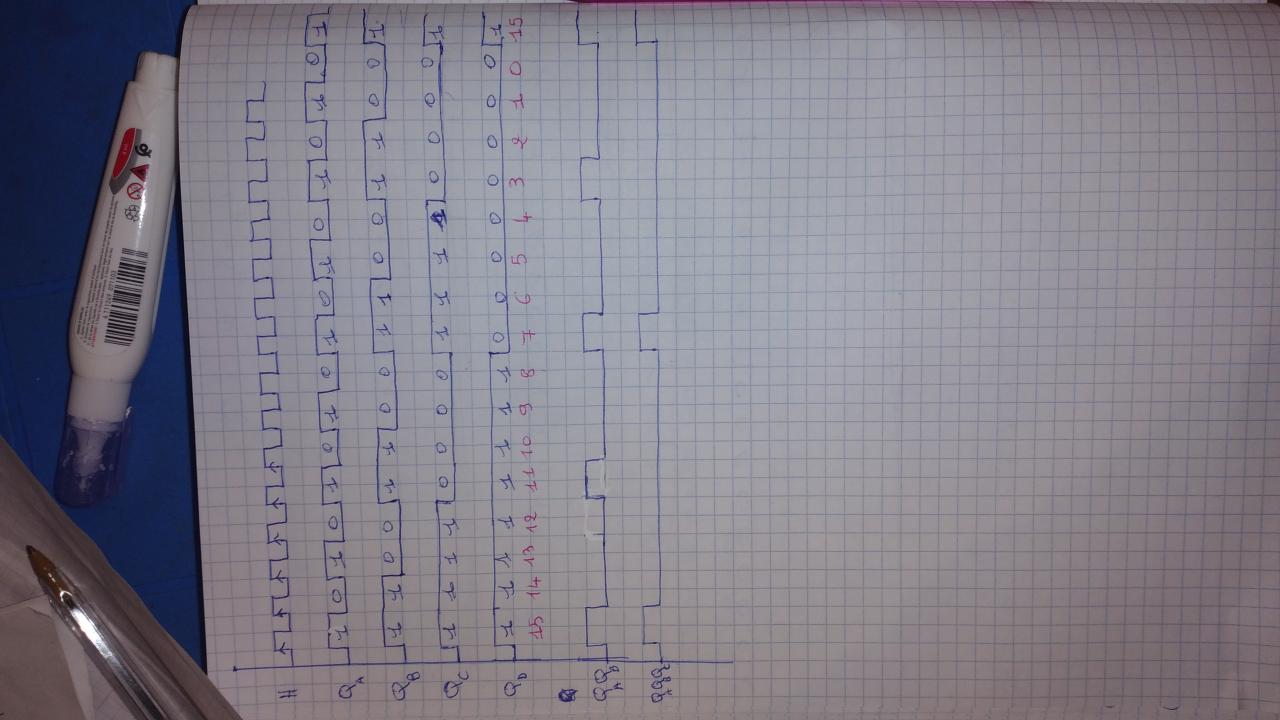 H
Q_A 1 0 1 0 1 0 1 0 1 0 1 0 1 0 1 0 1
Q_B 1 1 0 0 1 1 0 0 1 1 0 0 1 1 0 0 1
Q_C 1 1 1 1 0 0 0 0 1 1 1 1 0 0 0 0 1
Q_D 1 1 1 1 1 1 1 1 0 0 0 0 0 0 0 0 1
15 14 13 12 11 10 9 8 7 6 5 4 3 2 1 0 15
Q_A Q_B
Q_A Q_B Q_C